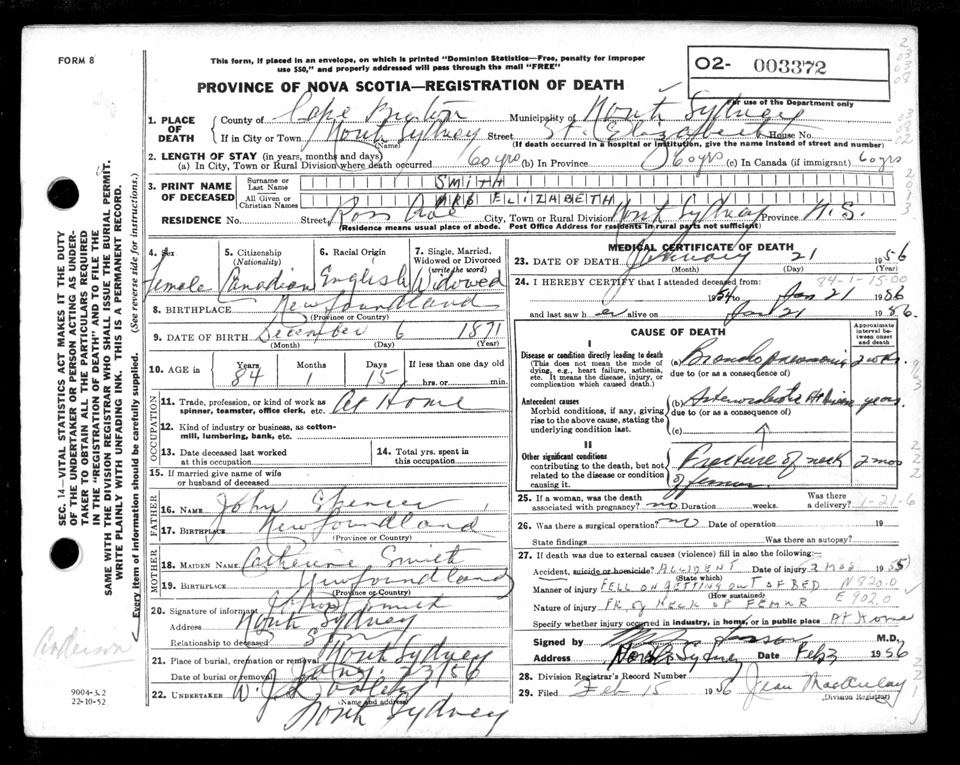 FORM 8
This form, if placed in an envelope, on which is printed "Dominion Statistics—Free, penalty for improper
use $50," and properly addressed will pass through the mail "FREE"
02- 003372
For use of the Department only
PROVINCE OF NOVA SCOTIA—REGISTRATION OF DEATH
1. PLACE OF DEATH
County of Cape Breton Municipality of North Sydney
If in City or Town North Sydney Street St. Elizabeth House No.
(Name) (If death occurred in a hospital or institution, give the name instead of street and number)
2. LENGTH OF STAY (in years, months and days)
(a) In City, Town or Rural Division where death occurred 60 yrs (b) In Province 60 yrs (c) In Canada (if immigrant) 60 yrs
3. PRINT NAME OF DECEASED
Surname or Last Name SMITH
All Given or Christian Names MRS ELIZABETH
RESIDENCE No. Street Ross Ave City, Town or Rural Division North Sydney Province N.S.
(Residence means usual place of abode. Post Office Address for residents in rural parts not sufficient)
4. Sex Female
5. Citizenship (Nationality) Canadian
6. Racial Origin English
7. Single, Married, Widowed or Divorced (write the word) Widowed
8. BIRTHPLACE Newfoundland
(Province or Country)
9. DATE OF BIRTH December 6 1871
(Month) (Day) (Year)
10. AGE in Years 84 Months 1 Days 15 If less than one day old
hrs. or min.
OCCUPATION
11. Trade, profession, or kind of work as
spinner, teamster, office clerk, etc. At Home
12. Kind of industry or business, as cotton-
mill, lumbering, bank, etc.
13. Date deceased last worked
at this occupation
14. Total yrs. spent in
this occupation
15. If married give name of wife
or husband of deceased
FATHER
16. Name John Spencer
17. Birthplace Newfoundland
(Province or Country)
MOTHER
18. MAIDEN NAME Catherine Smith
19. BIRTHPLACE Newfoundland
(Province or Country)
20. Signature of informant Smith
Address North Sydney
Relationship to deceased Son
21. Place of burial, cremation or removal North Sydney
Date of burial or removal Jan 23/56
22. UNDERTAKER W. J. Dooley
(Name and address)
North Sydney
MEDICAL CERTIFICATE OF DEATH
23. DATE OF DEATH January 21 1956
(Month) (Day) (Year)
84-1-15-00
24. I HEREBY CERTIFY that I attended deceased from
1954 to Jan 21 1956
and last saw her alive on Jan 21 1956.
CAUSE OF DEATH
Approximate interval between onset and death
I
Disease or condition directly leading to death
(This does not mean the mode of dying, e.g., heart failure, asthenia, etc. It means the disease, injury, or complication which caused death.)
(a) Bronchopneumonia 2 wks.
due to (or as a consequence of)
Antecedent causes
Morbid conditions, if any, giving rise to the above cause, stating the underlying condition last.
(b) Arteriosclerotic Ht Disease years.
due to (or as a consequence of)
(c)
II
Other significant conditions
contributing to the death, but not related to the disease or condition causing it.
Fracture of neck of femur. 2 mos
25. If a woman, was the death
associated with pregnancy? no Duration weeks. Was there a delivery?
1-21-6
26. Was there a surgical operation? no Date of operation 19
State findings Was there an autopsy?
27. If death was due to external causes (violence) fill in also the following:
Accident, suicide or homicide? ACCIDENT Date of injury 2 Mos 1955
(State which)
Manner of injury FELL ON GETTING OUT OF BED N820.0
(How sustained)
Nature of injury FR. OF NECK OF FEMUR E902.0
Specify whether injury occurred in industry, in home, or in public place At Home
Signed by M.D.
Address North Sydney Date Feb 3 1956
28. Division Registrar's Record Number
29. Filed Feb 15 1956 Jean MacAulay
(Division Registrar)
SEC. 14—VITAL STATISTICS ACT MAKES IT THE DUTY
OF THE UNDERTAKER OR PERSON ACTING AS UNDER-
TAKER TO OBTAIN ALL THE PARTICULARS REQUIRED
IN THE "REGISTRATION OF DEATH" AND TO FILE THE
SAME WITH THE DIVISION REGISTRAR WHO SHALL ISSUE THE BURIAL PERMIT.
WRITE PLAINLY WITH UNFADING INK. THIS IS A PERMANENT RECORD.
Every item of information should be carefully supplied. (See reverse side for instructions.)
Anderson
9004-3.2
22-10-52